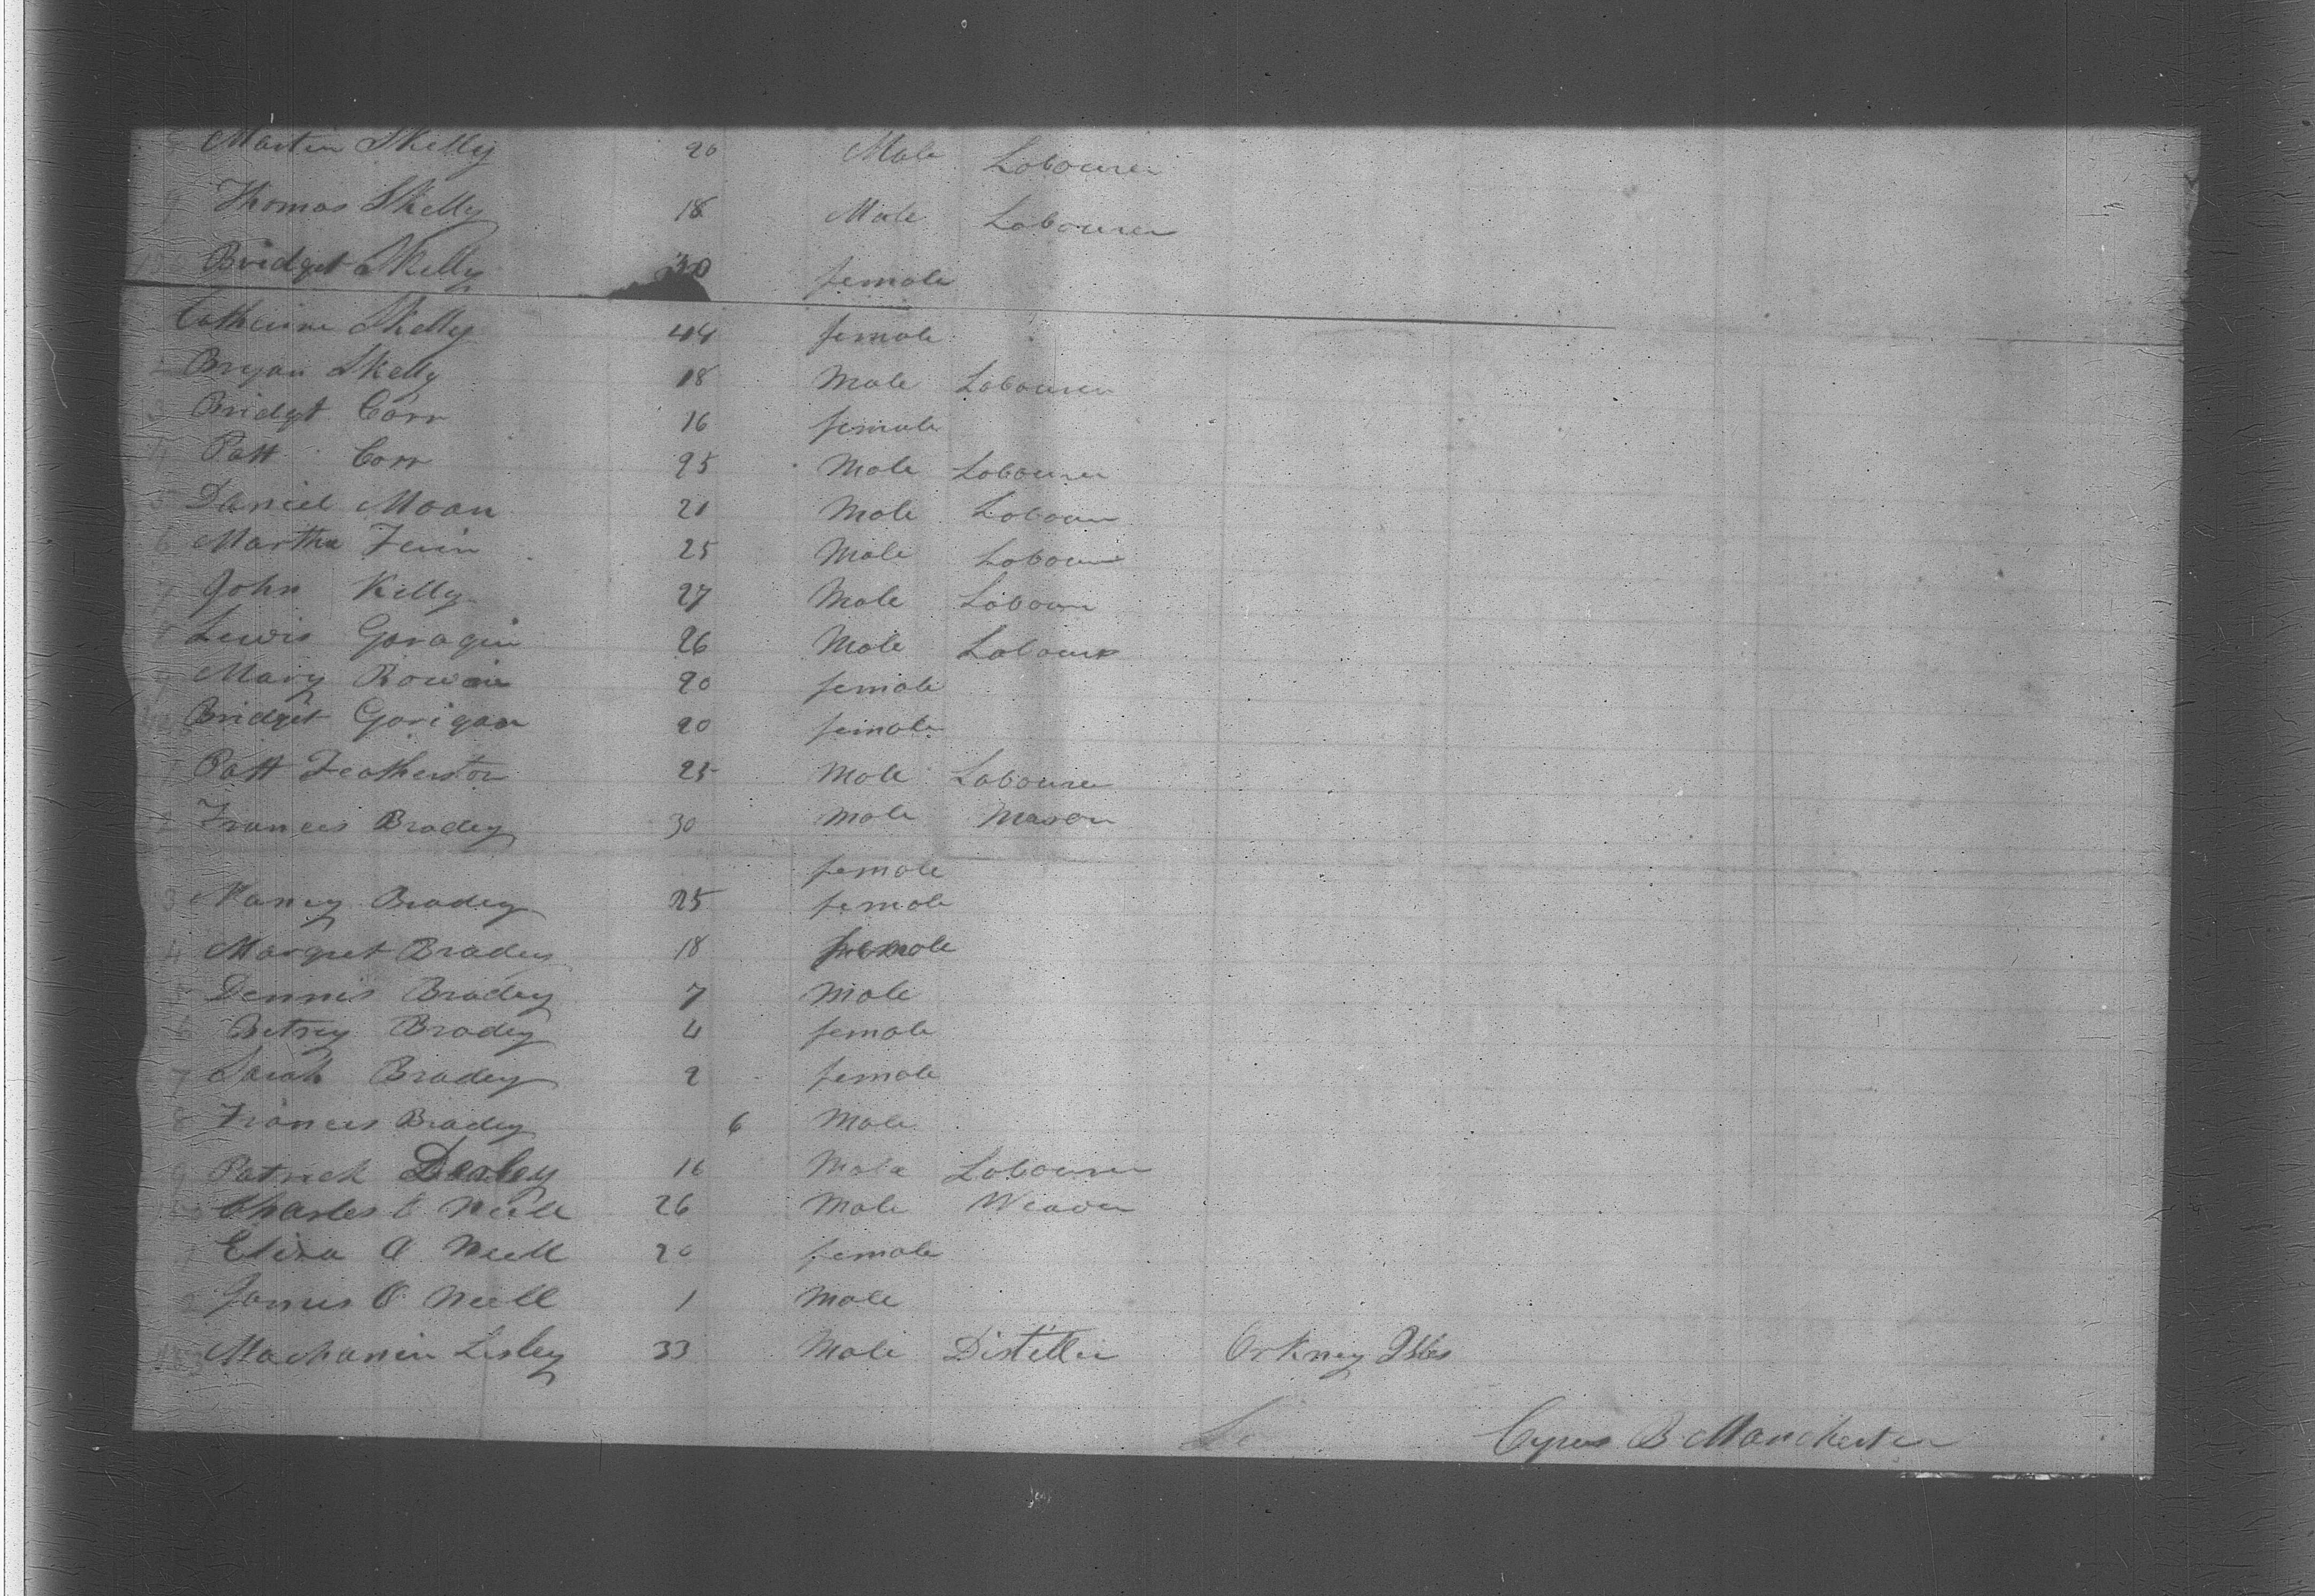 Martin Skelly 20 Male Labourer
9 Thomas Skelly 18 Male Labourer
Bridget Skelly female
Catherine Skelly 44 female
2 Bryan Skelly 18 Male Labourer
3 Bridgt Corr 16 female
4 Patt Corr 25 Male Labourer
5 Daniel Moan 21 Male Labour
6 Martha 25 Male Labour
7 John Kelly 27 Male Labour
8 Lewis Garagin 26 Male Labour
9 Mary Rowan 20 female
Bridget Garigan 20 female
1 Patt Featherston 25 Male Labourer
2 Frances Bradey 30 Male Mason
female
3 Nancy Bradey 25 female
4 Margret Bradey 18 female
Dennis Bradey 7 Male
6 Betsey Bradey 4 female
7 Sarah Bradey 2 female
8 Frances Bradey 6 Male
9 Patrick 16 Male Labourer
Charles O Neill 26 Male Weaver
1 Eliza O Neill 20 female
2 James O Neill 1 Male
Lesley 33 Male Distiller Orkney Isles
Cyrus B Manchester